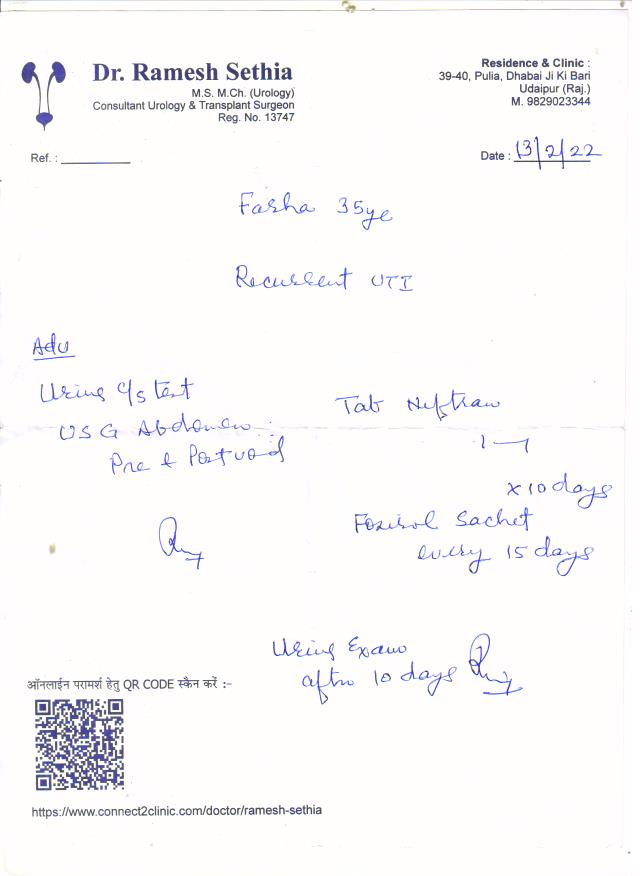 Dr. Ramesh Sethia
M.S. M.Ch. (Urology)
Consultant Urology & Transplant Surgeon
Reg. No. 13747
Residence & Clinic :
39-40, Pulia, Dhabai Ji Ki Bari
Udaipur (Raj.)
M. 9829023344
Ref. :
Date : 13/2/22
Farha 35ye
Recurrent UTI
Adv
Urine c/s test
USG Abdomen
Pre & Postvoid
Tab Neftran
1—1
x 10 days
Fosirol Sachet
every 15 days
Urine Exam
after 10 days
ऑनलाईन परामर्श हेतु QR CODE स्कैन करें :-
https://www.connect2clinic.com/doctor/ramesh-sethia